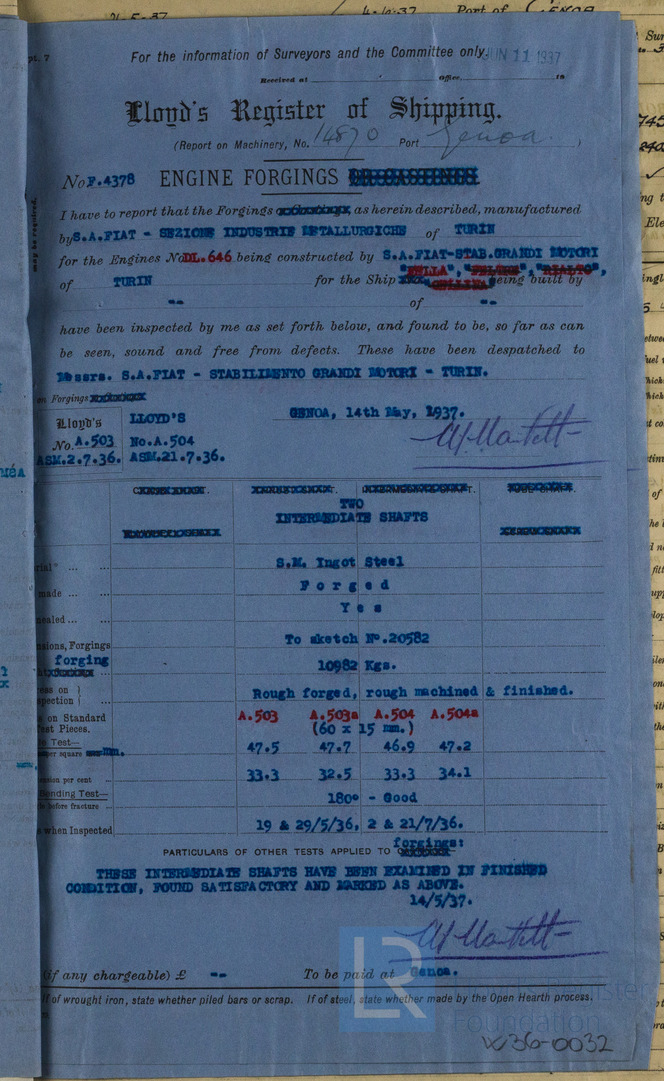 21-5-37 4-10-37 Port of GENOA
pt. 7
For the information of Surveyors and the Committee only.
JUN 11 1937
Received at Office to
Lloyd's Register of Shipping.
(Report on Machinery, No. 14870 Port Genoa. )
No F.4378 ENGINE FORGINGS
I have to report that the Forgings as herein described, manufactured
by S.A.FIAT - SEZIONE INDUSTRIE METALLURGICHE of TURIN
for the Engines No DL.646 being constructed by S.A.FIAT-STAB.GRANDI MOTORI
"RIALTO",
of TURIN for the Ship being built by
-- of --
have been inspected by me as set forth below, and found to be, so far as can
be seen, sound and free from defects. These have been despatched to
Messrs. S.A.FIAT - STABILIMENTO GRANDI MOTORI - TURIN.
on Forgings
Lloyd's LLOYD'S GENOA, 14th May, 1937.
No. A.503 No.A.504
ASM.2.7.36. ASM.21.7.36.
may be required.
TWO
INTERMEDIATE SHAFTS
rial" ... ... S.M. Ingot Steel
made ... ... Forged
ealed ... ... Yes
sions, Forgings To sketch N°.20582
forging 10982 Kgs.
ess on }
spection } Rough forged, rough machined & finished.
s on Standard A.503 A.503a A.504 A.504a
est Pieces. (60 x 15 mm.)
e Test—
per square mm. 47.5 47.7 46.9 47.2
nsion per cent ... 33.3 32.5 33.3 34.1
ending Test—
le before fracture ... 180° - Good
when Inspected 19 & 29/5/36, 2 & 21/7/36.
PARTICULARS OF OTHER TESTS APPLIED TO forgings:
THESE INTERMEDIATE SHAFTS HAVE BEEN EXAMINED IN FINISHED
CONDITION, FOUND SATISFACTORY AND MARKED AS ABOVE.
14/5/37.
(if any chargeable) £ -- To be paid at Genoa.
If of wrought iron, state whether piled bars or scrap. If of steel, state whether made by the Open Hearth process.
LR
Foundation
W36-0032